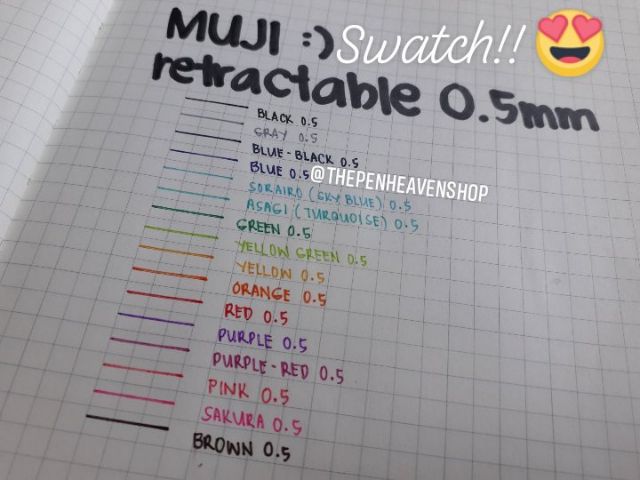 MUJI :) Swatch!! 😍
retractable 0.5mm
BLACK 0.5
GRAY 0.5
BLUE-BLACK 0.5
BLUE 0.5
@THEPENHEAVENSHOP
SORAIRO (SKY BLUE) 0.5
ASAGI (TURQUOISE) 0.5
GREEN 0.5
YELLOW GREEN 0.5
YELLOW 0.5
ORANGE 0.5
RED 0.5
PURPLE 0.5
PURPLE-RED 0.5
PINK 0.5
SAKURA 0.5
BROWN 0.5